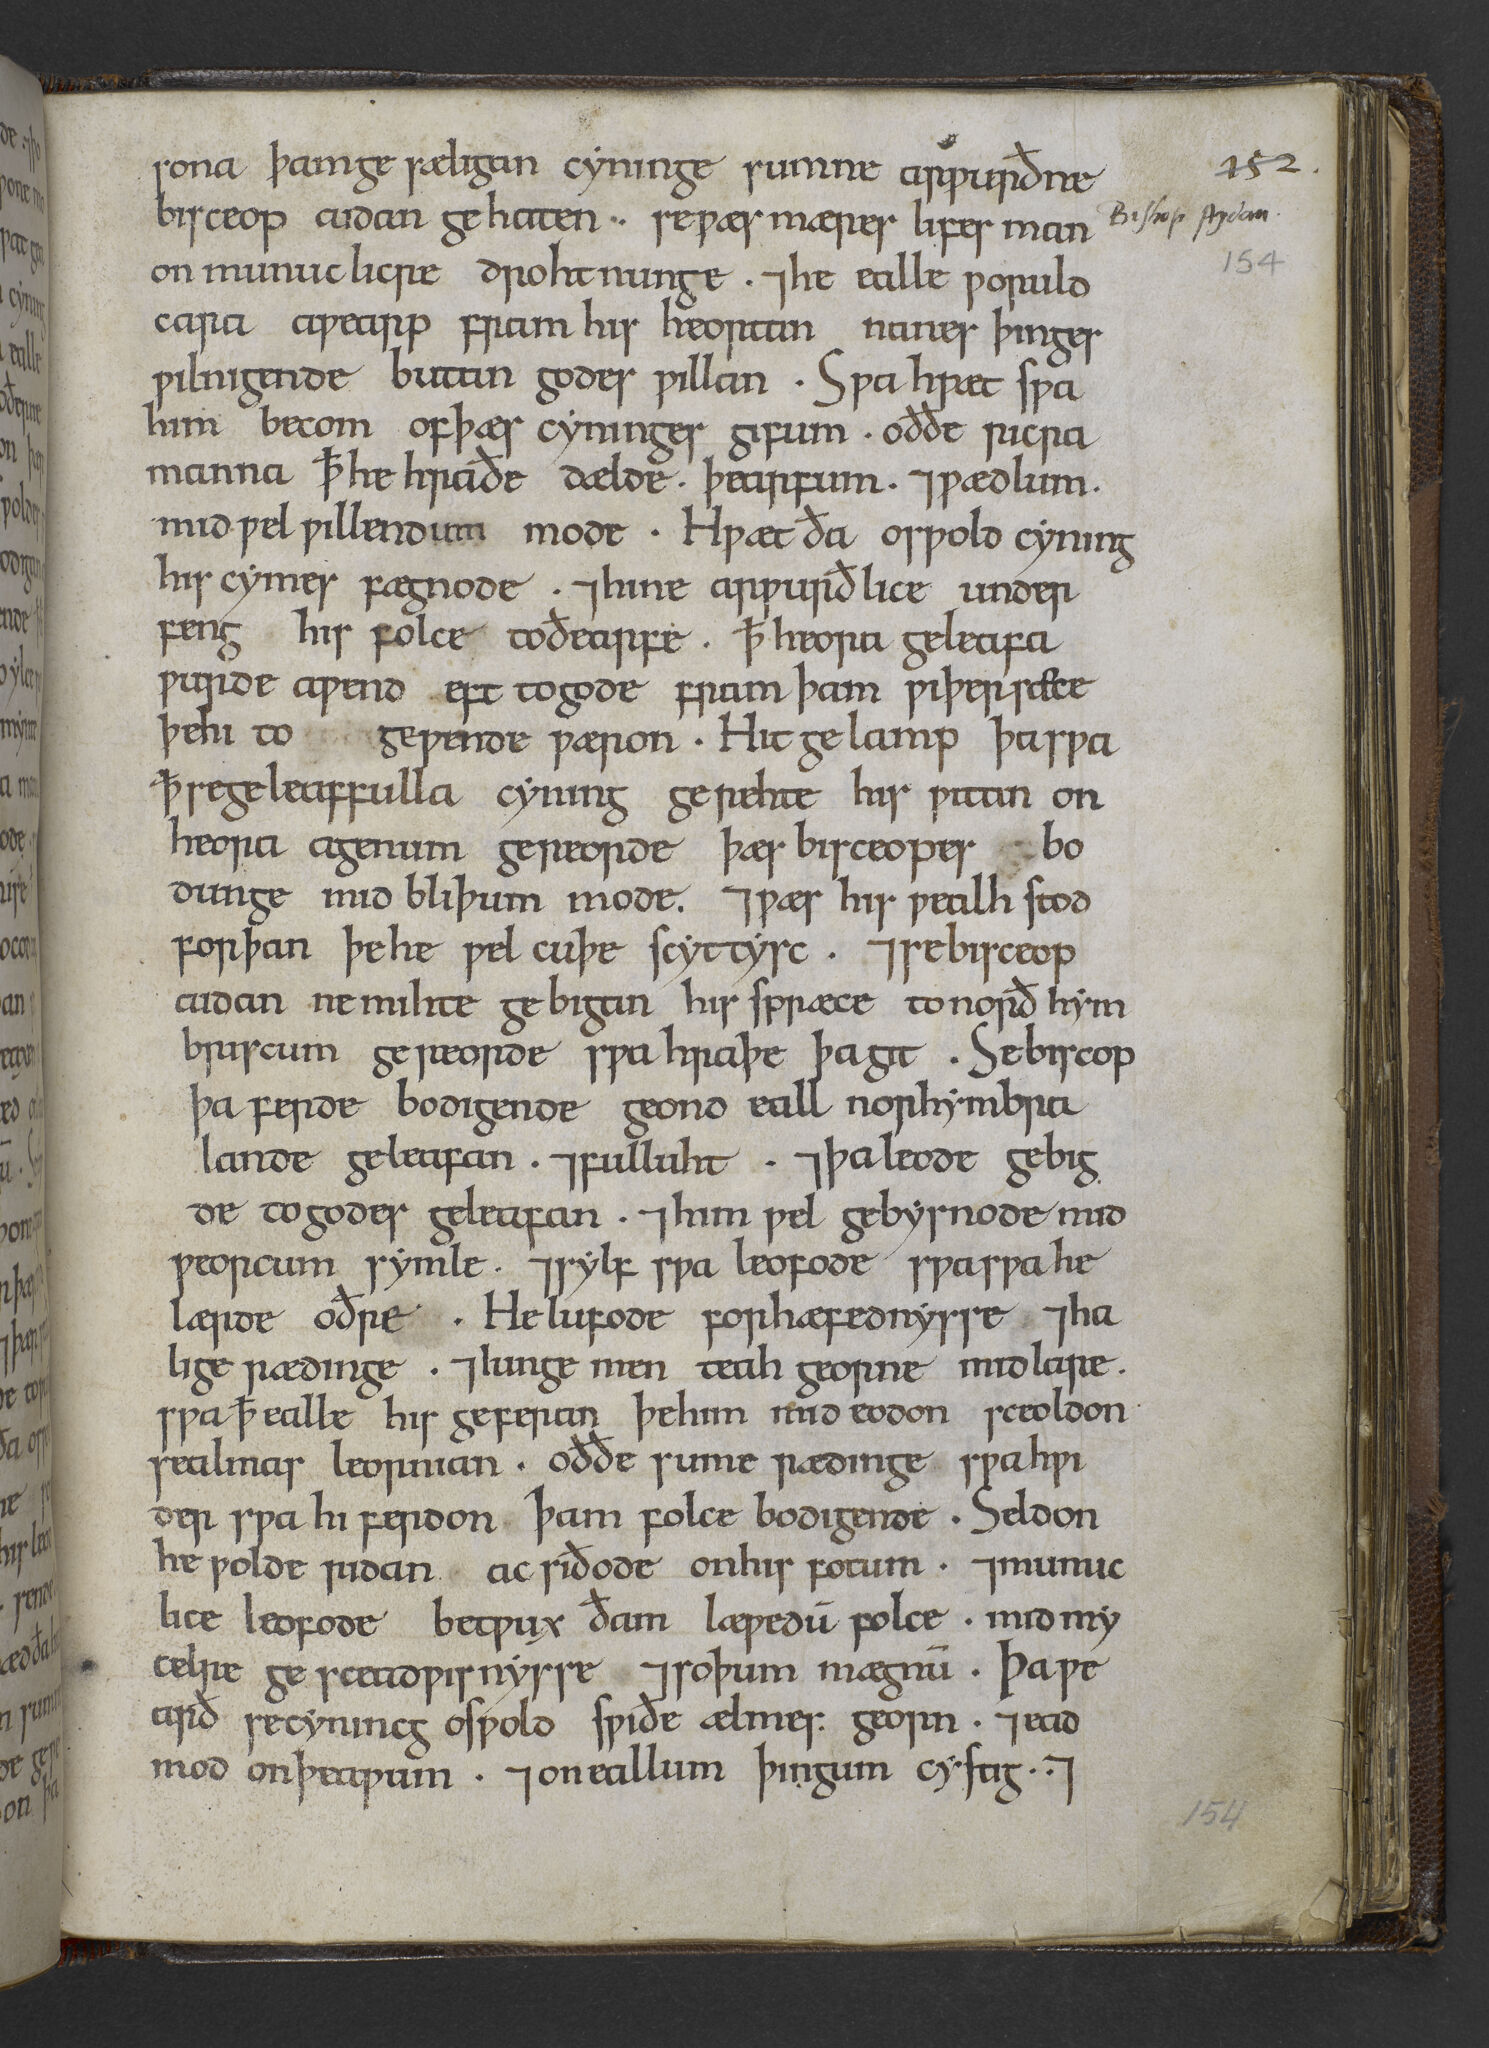 sona þam ge sæligan cyninge sumne arƿurðne
152.
bisceop aidan gehaten .. se ƿæs mæres lifes man
Bishop Aydan.
on munuc licre drohtnunge . ⁊ he ealle ƿoruld
154
cara aƿearp fram his heortan nanes þinges
ƿilnigende butan godes ƿillan . Sƿa hƿæt sƿa
him becom of þæs cyninges gifum . oððe ricra
manna ꝥ he hraðe dælde . þearfum . ⁊ ƿædlum .
mid ƿel ƿillendum mode . Hƿæt ða osƿold cyning
his cymes fægnode . ⁊ hine arƿurðlice under
feng his folce to ðearfe . ꝥ heora geleafa
ƿurde aƿend eft to gode fram þam ƿiþersæce
þe hi to geƿende ƿæron . Hit ge lamp þa sƿa
ꝥ se geleaffulla cyning gerehte his ƿitan on
heora agenum gereorde þæs bisceopes bo
dunge mid bliþum mode . ⁊ ƿæs his ƿealh stod
forþan þe he ƿel cuþe scyttysc . ⁊ se bisceop
aidan ne mihte ge bigan his spræce to norð hym
briscum gereorde sƿa hraþe þa git . Se biscop
þa ferde bodigende geond eall norhymbra
lande geleafan . ⁊ fulluht . ⁊ þa leode gebig
de to godes geleafan . ⁊ him ƿel gebysnode mid
ƿeorcum symle . ⁊ sylf sƿa leofode sƿa sƿa he
lærde oðre . He lufode forhæfednysse ⁊ ha
lige rædinge . ⁊ iunge men teah georne mid lare .
sƿa ꝥ ealle his geferan þe him mid eodon sceoldon
sealmas leornian . oððe sume rædinge sƿa hƿi
der sƿa hi ferdon þam folce bodigende . Seldon
he ƿolde ridan ac siðode on his fotum . ⁊ munuc
lice leofode betƿux ðam læƿedū folce . mid my
celre ge sceadƿisnysse ⁊ soþum mægnū . Þa ƿe
arð se cynincg osƿold sƿiðe ælmes georn . ⁊ ead
mod on þeaƿum . ⁊ on eallum þingum cystig .. ⁊
154